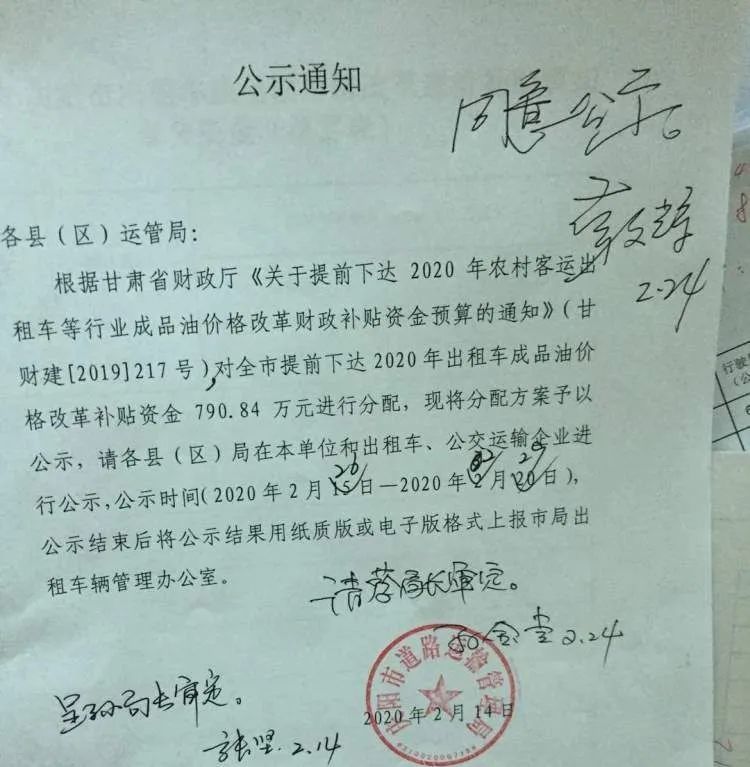 公示通知
同意公示。
2.24
各县（区）运管局：
根据甘肃省财政厅《关于提前下达 2020 年农村客运出
租车等行业成品油价格改革财政补贴资金预算的通知》（甘
财建[2019]217 号），对全市提前下达 2020 年出租车成品油价
格改革补贴资金 790.84 万元进行分配，现将分配方案予以
公示，请各县（区）局在本单位和出租车、公交运输企业进
行公示，公示时间（2020 年 2 月 15 日—2020 年 2 月 20 日），
公示结束后将公示结果用纸质版或电子版格式上报市局出
租车辆管理办公室。
局长审定。
2.24
庆阳市道路运输管理局
2020 年 2 月 14 日
呈孙局长审定。
张坚 2.14